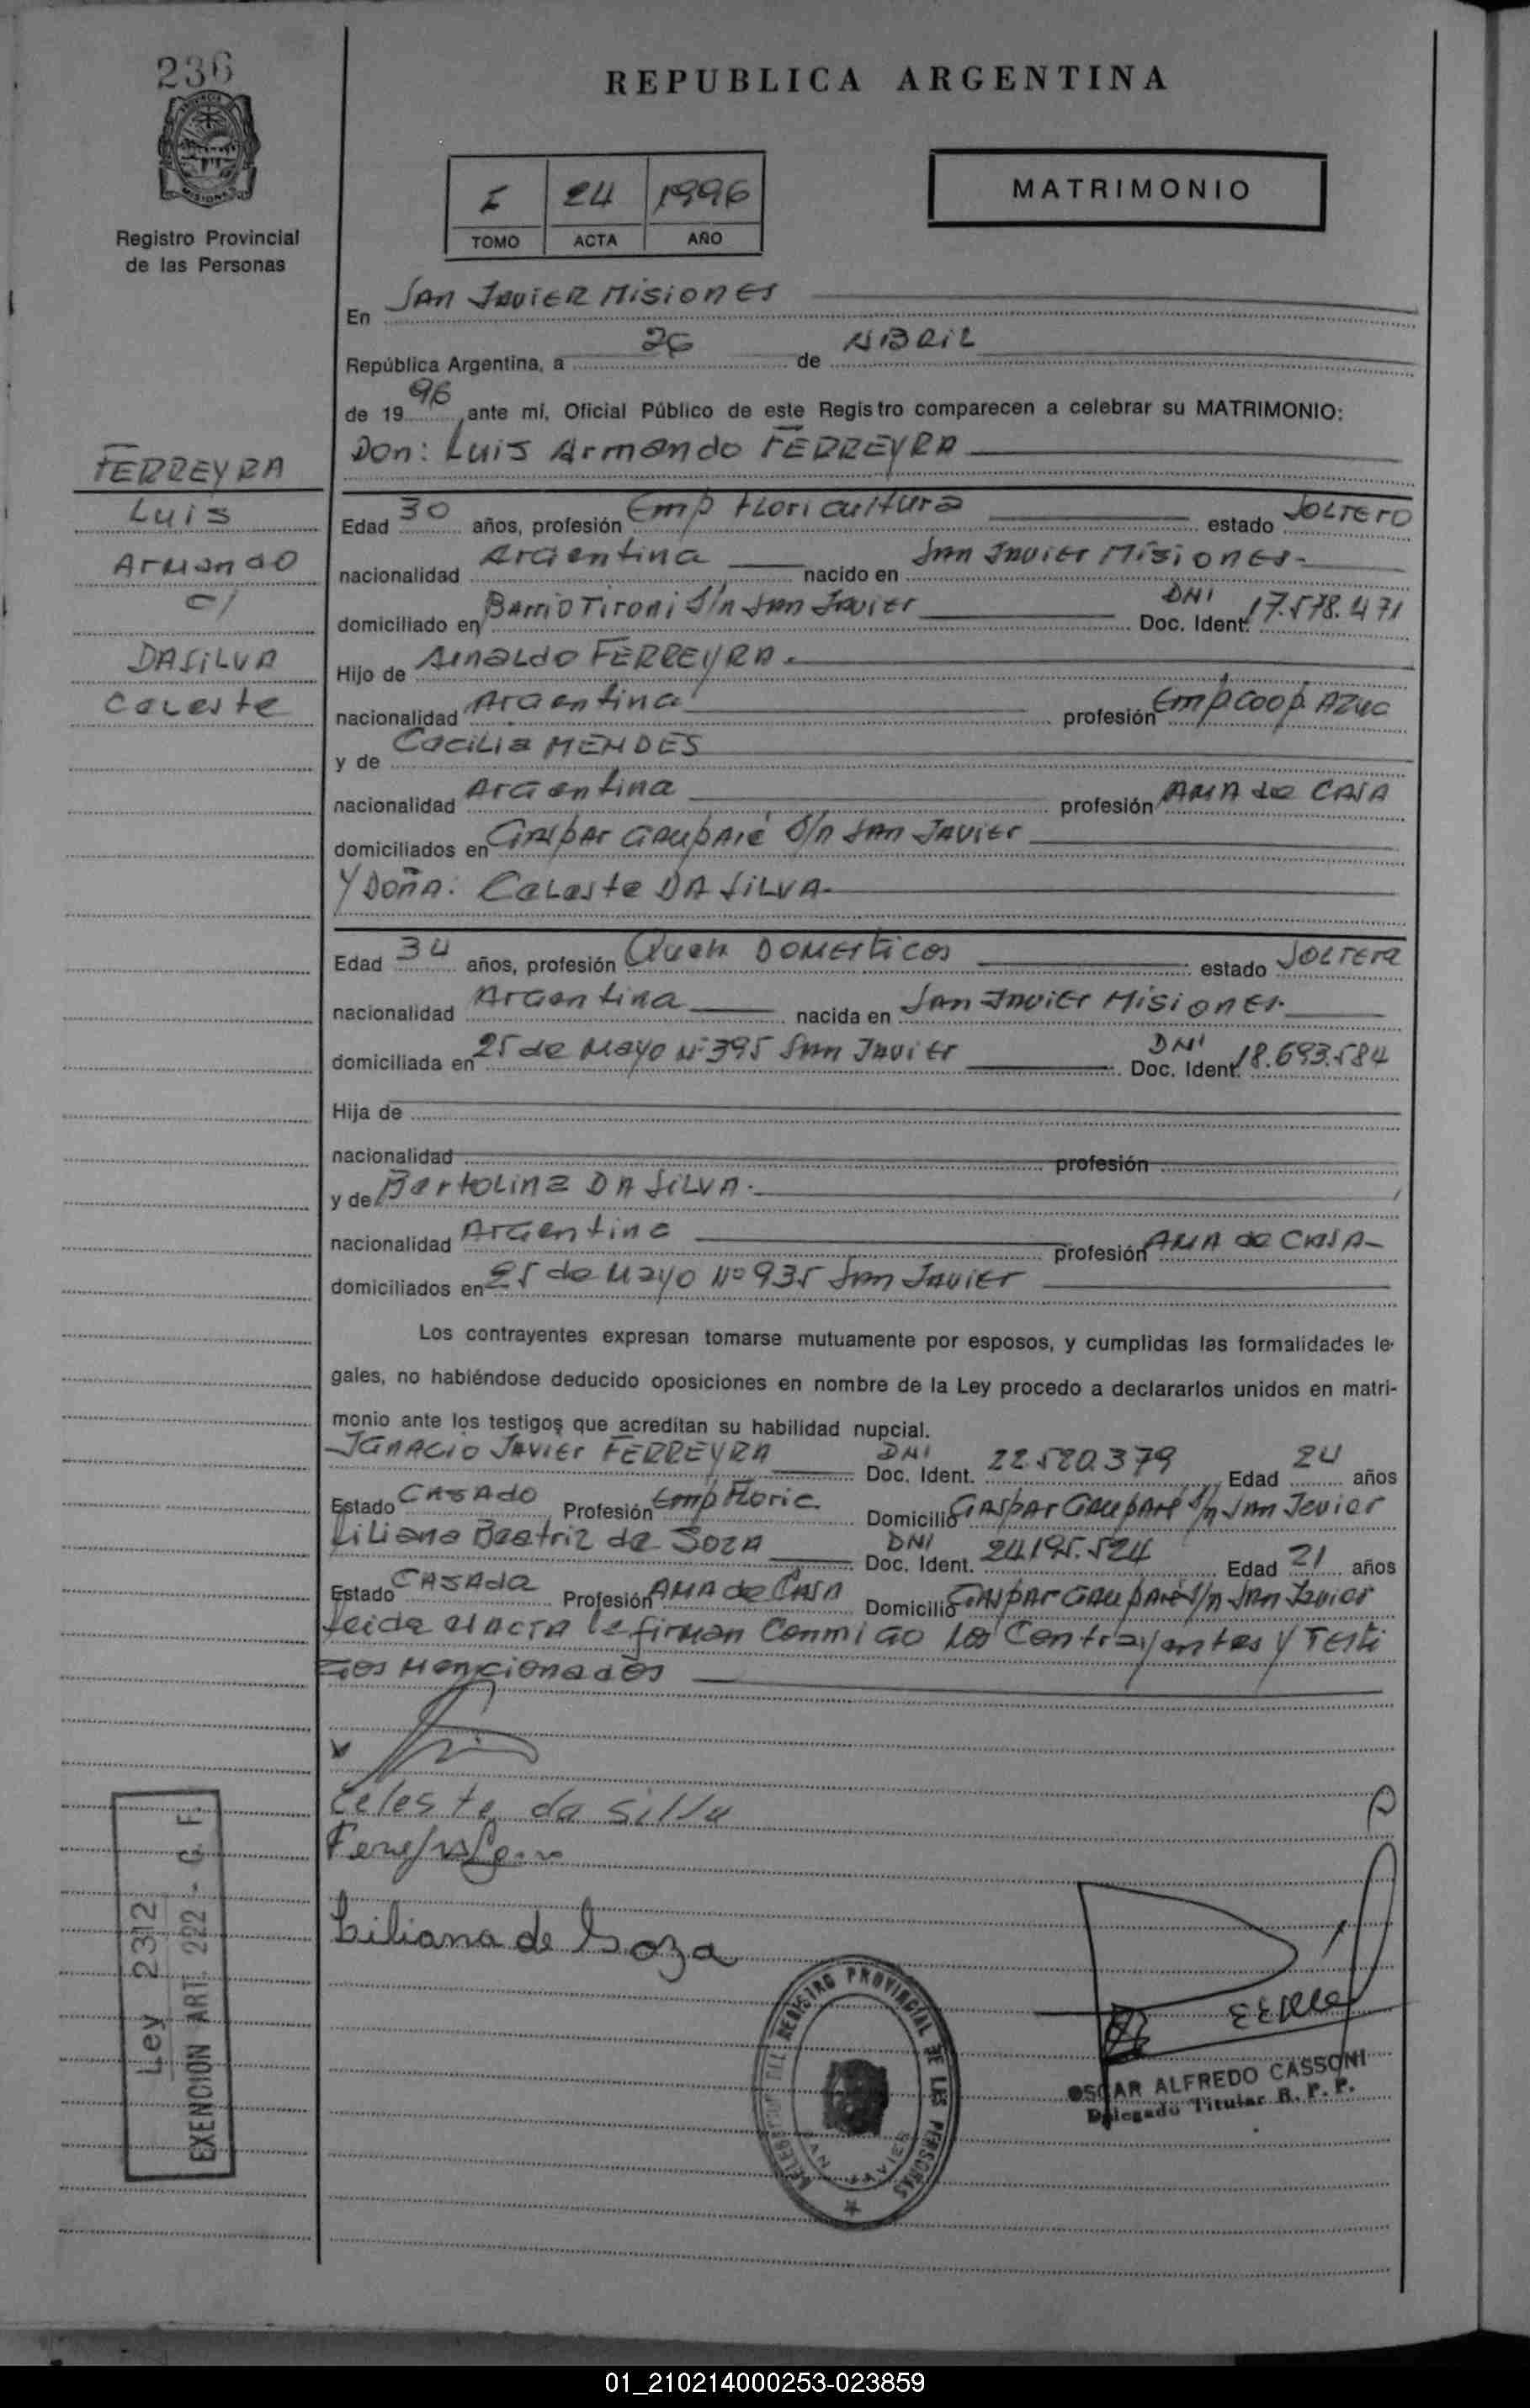 236
REPUBLICA ARGENTINA
I 24 1996
TOMO ACTA AÑO
MATRIMONIO
Registro Provincial
de las Personas
En San Javier Misiones
República Argentina, a 26 de Abril
de 19 96 ,ante mí, Oficial Público de este Registro comparecen a celebrar su MATRIMONIO:
Don: Luis Armando FERREYRA
FERREYRA
Luis
Armando
c/
DASILVA
Celeste
Edad 30 años, profesión Emp Floricultura estado Soltero
nacionalidad Argentina nacido en San Javier Misiones-
domiciliado en Barrio Tironi S/n San Javier Doc. Ident. DNI 17.578.471
Hijo de Arnaldo FERREYRA.
nacionalidad Argentina profesión Emp coop. Azuc
y de Cecilia MENDES
nacionalidad Argentina profesión AMA de CASA
domiciliados en Gaspar S/n San Javier
Y DOÑA: Celeste DA SILVA-
Edad 34 años, profesión Queh DOMESticos estado Soltera
nacionalidad Argentina nacida en San Javier Misiones.
domiciliada en 25 de Mayo Nº 395 San Javier Doc. Ident. DNI 18.693.584
Hija de
nacionalidad profesión
y de Bertolina DA SILVA.
nacionalidad Argentina profesión AMA de CASA-
domiciliados en 25 de Mayo Nº 935 San Javier
Los contrayentes expresan tomarse mutuamente por esposos, y cumplidas las formalidades le-
gales, no habiéndose deducido oposiciones en nombre de la Ley procedo a declararlos unidos en matri-
monio ante los testigos que acreditan su habilidad nupcial.
Ignacio Javier FERREYRA Doc. Ident. DNI 22.520.379 Edad 24 años
Estado CASADO Profesión Emp Floric Domicilio Gaspar S/n San Javier
Liliana Beatriz de SOZA Doc. Ident. DNI 24.195.524 Edad 21 años
Estado CASADA Profesión AMA de CASA Domicilio Gaspar S/n San Javier
Leida el ACTA la firman Conmigo los Contrayentes y Testi
gos Mencionados
Celeste da Silva
Liliana de Soza
Ley 2312
EXENCION ART. 222 - C. F.
DELEGACION DEL REGISTRO PROVINCIAL DE LAS PERSONAS
SAN JAVIER
OSCAR ALFREDO CASSONI
Delegado Titular R. P. P.
01_210214000253-023859